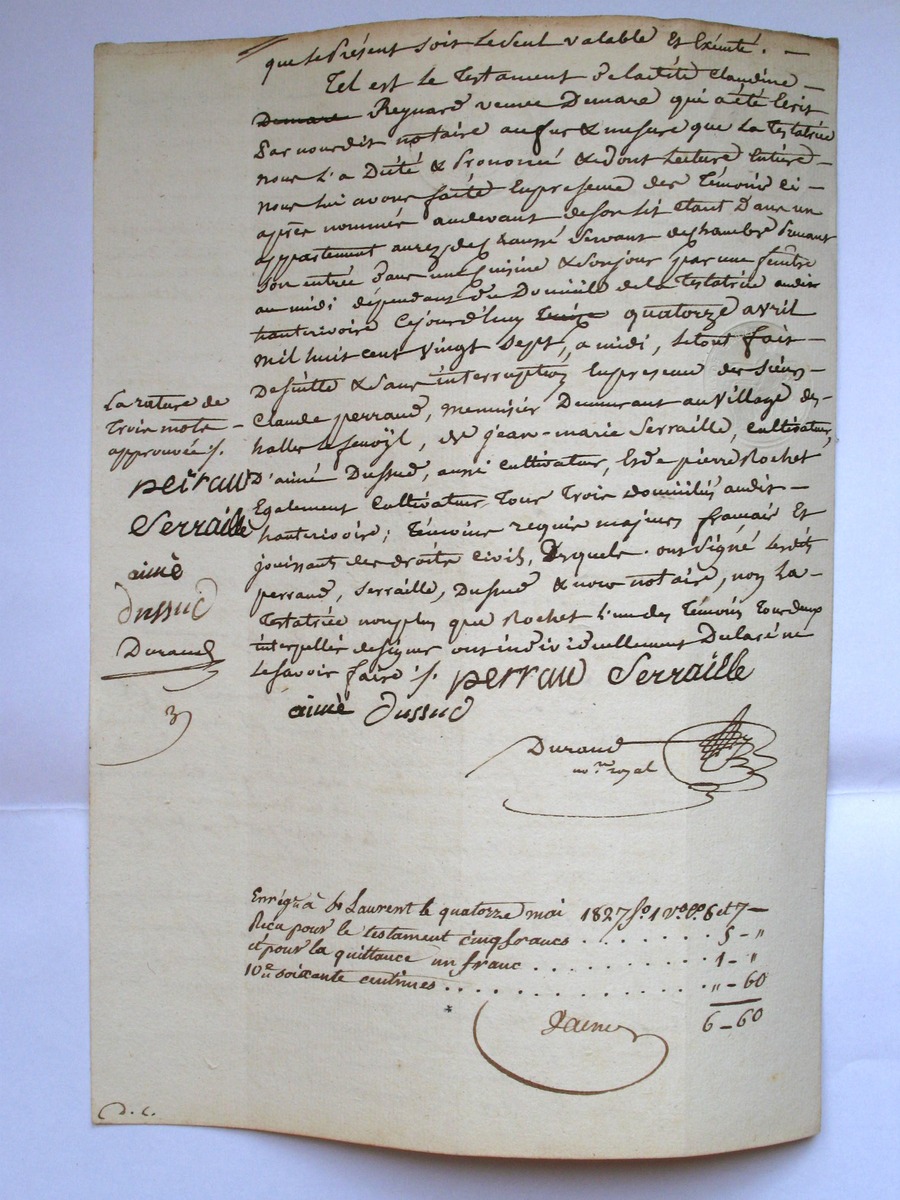 que le Présent soit le seul valable Et Exécuté. —
Tel est le Testament de ladite Claudine —
Demare Reynard veuve Demare qui a été Ecrit
Par nousdit notaire au fur & mesure que La Testatrice
nous l'a Dicté & Prononcé & dont Lecture Entière —
nous lui avons faite En presence des Témoins ci —
après nommés au devant de son lit Etant Dans un
appartement au rez de chaussé servant de chambre Prenant
son entrée dans une cuisine & son jour par une fenêtre
au midi dépendant du Domicile de la Testatrice audit
hauterivoire Cejourd'huy quatorze avril
mil huit cent vingt sept, a midi, le tout fait —
De suitte & sans interruption En presence des Sieurs —
Claude perraud, menuisier Demeurant au village des
halles , de jean-marie Serraille, cultivateur,
D'aimé Dussud, aussi cultivateur, Et de pierre Rochet
Egalement Cultivateur Tous Trois domiciliés audit —
hauterivoire; Témoins requis majeurs francais Et
jouissants des droits civils, Desquels ont signé lesdits
perraud, Serraille, Dussud & nous notaire, non La —
Testatrice non plus que Rochet l'un des Témoins Tous deux
interpellés de signer ont individuellement Déclaré ne
Le savoir faire ./.
perrau Serraille
aimè Dussud
Durand
no.re royal
La rature de
Trois mots —
approuvée ./.
perrau
Serraille
aimè
dussud
Durand
Enrég. à St Laurent le quatorze mai 1827 fo. 1 vo. cs. 6 et 7 —
Reçu pour le testament cinq francs . . . . . . . 5 - "
et pour la quittance un franc . . . . . . . . . . 1 - "
10.e soixante centimes . . . . . . . . . . . . . . " - 60
6 - 60
D. C.